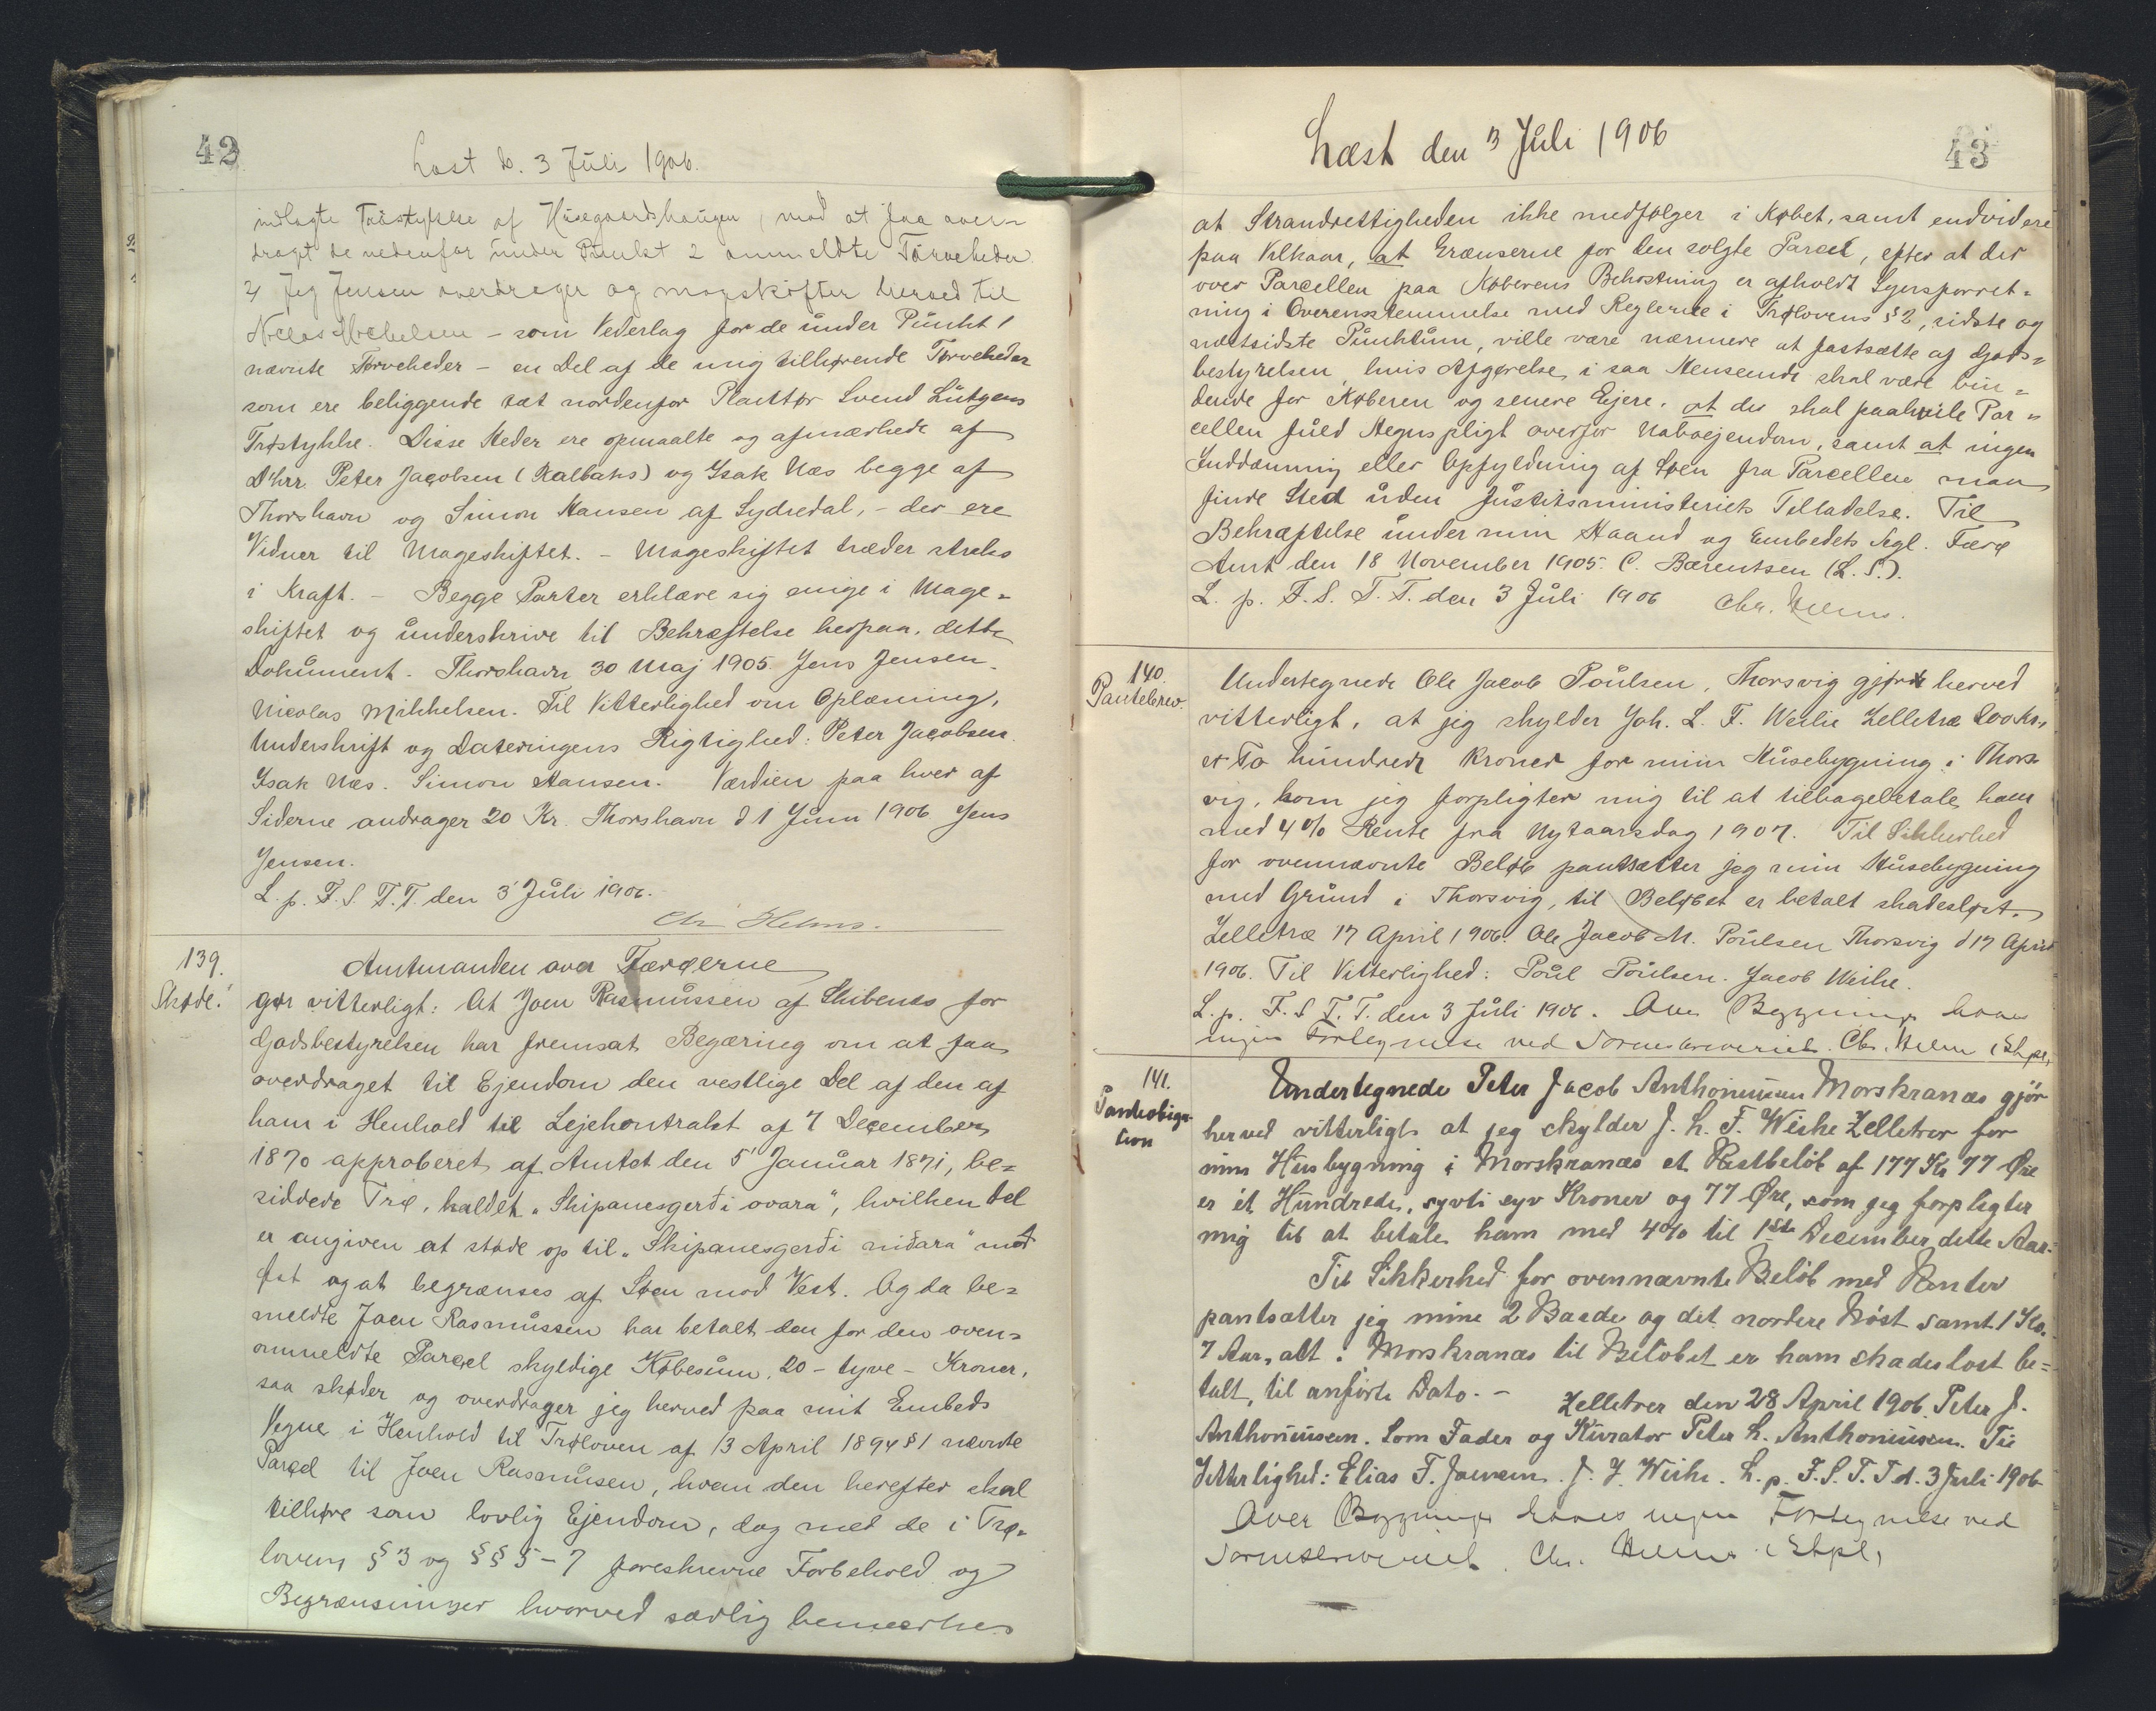 42
Læst d. 3 Juli 1906.
indlagte Trøstykke af Husegaardshaugen, mod at faa over-
draget de nedenfor under Punkt 2 anmeldte Tørveheder.
2, Jeg Jensen overdrager og mageskifter herved til
Niclas Mikkelsen - som Vederlag for de under Punkt 1
nævnte Tørveheder - en Del af de mig tilhørende Tørveheder
som ere beliggende tæt nordenfor Plantør Svend Lützens
Trøstykke. Disse Heder ere opmaalte og afmærkede af
D'hrr. Peter Jacobsen (Kalbaks) og Isak Næs begge af
Thorshavn og Simon Hansen af Sydredal, - der ere
Vidner til Mageskiftet. - Mageskiftet træder straks
i Kraft. - Begge Parter erklære sig enige i Mage-
skiftet og underskrive til Bekræftelse herpaa, dette
Dokument. Thorshavn 30 Maj 1905. Jens Jensen.
Nicolas Mikkelsen. Til Vitterlighed om Oplæsning,
Underskrift og Dateringens Rigtighed: Peter Jacobsen.
Isak Næs. Simon Hansen. Værdien paa hver af
Siderne andrager 20 Kr. Thorshavn d 1 Juni 1906 Jens
Jensen.
L. p. F. S. T. T. den 3 Juli 1906.
Chr Helms.
139.
Skøde.
Amtmanden over Færøerne
gør vitterligt: At Joen Rasmussen af Skibenæs for
Godsbestyrelsen har fremsat Begæring om at faa
overdraget til Ejendom den vestlige Del af den af
ham i Henhold til Lejekontrakt af 7 December
1870 approberet af Amtet den 5 Januar 1871, be=
siddede Trø, kaldet „Skipanesgerði ovara", hvilken Del
er angiven at støde op til „Skipanesgerði niðara" mod
Øst og at begrænses af Søen mod Vest. Og da be=
meldte Joen Rasmussen har betalt den for den oven=
ommeldte Parcel skyldige Købesum, 20 - tyve - Kroner,
saa skøder og overdrager jeg herved paa mit Embeds
Vegne i Henhold til Trøloven af 13 April 1894 § 1 nævnte
Parcel til Joen Rasmusen, hvem den herefter skal
tilhøre som lovlig Ejendom, dog med de i Trø=
lovens § 3 og §§ 5-7 foreskrevne Forbehold og
Begrænsninger hvorved særlig bemærkes
Læst den 3 Juli 1906
43
at Strandrettigheden ikke medfølger i Købet, samt endvidere
paa Vilkaar, at Grænserne for den solgte Parcel, efter at der
over Parcellen paa Køberens Bekostning er afholdt Synsforret-
ning i Overensstemmelse med Reglerne i Trølovens § 2, sidste og
næstsidste Punktum, ville være nærmere at fastsætte af Gods=
bestyrelsen, hvis Afgørelse i saa Henseende skal være bin=
dende for Køberen og senere Ejere, at der skal paahvile Par=
cellen fuld Hegnspligt overfor Naboejendom, samt at ingen
Inddæmning eller Opfyldning af Søen fra Parcellen maa
finde Sted uden Justitsministeriets Tilladelse. Til
Bekræftelse under min Haand og Embedets Segl. Færø
Amt den 18 November 1905. C. Bærentsen (L. S.).
L. p. F. S. T. T. den 3 Juli 1906 Chr. Helms.
140.
Pantebrev.
Undertegnede Ole Jacob Poulsen, Thorsvig gjør herved
vitterligt, at jeg skylder Joh. L. F. Weihe Zelletræ 200 Kr,
er To hundrede Kroner for min Husebygning i Thors-
vig, som jeg forpligter mig til at tilbagebetale ham
med 4% Rente fra Nytaarsdag 1907. Til Sikkerhed
for ovennævnte Beløb pantsætter jeg min Husebygning
med Grund i Thorsvig, til Beløbet er betalt skadesløst.
Zelletræ 17 April 1906. Ole Jacob M. Poulsen Thorsvig d 17 April
1906. Til Vitterlighed: Poul Poulsen. Jacob Weihe.
L. p. F. S T. T. den 3 Juli 1906. Over Bygning haves
ingen Fortegnelse ved Sorenskriveriet. Chr. Helms Skpl,
141.
Pantobliga-
tion
Undertegnede Peter Jacob Anthoniussen Morskranæs gjör
herved vitterligt at jeg skylder J. L. F. Weihe Zelletrær for
min Husbygning i Morskranæs et Restbelöb af 177 Kr 77 Øre
er ét Hundrede, syvti syv Kroner og 77 Øre, som jeg forpligter
mig til at betale ham med 4% til 1ste December dette Aar.
Til Sikkerhed for ovennævnte Belöb med Renter
pantsætter jeg mine 2 Baade og det nordere Nöst samt 1 Ko.
7 Aar, alt i Morskranæs til Belöbet er ham skadeslöst be=
talt, til anförte Dato. - Zelletrær den 28 April 1906. Peter J.
Anthoniussen. Som Fader og Kurator Peter L. Anthoniussen. Til
Vitterlighed: Elias F. Joensen. J. J. Weihe. L. p. F. S. T. T d. 3 Juli 1906
Over Bygning haves ingen Fortegnelse ved
Sorenskriveriet. Chr. Helms Skpl,